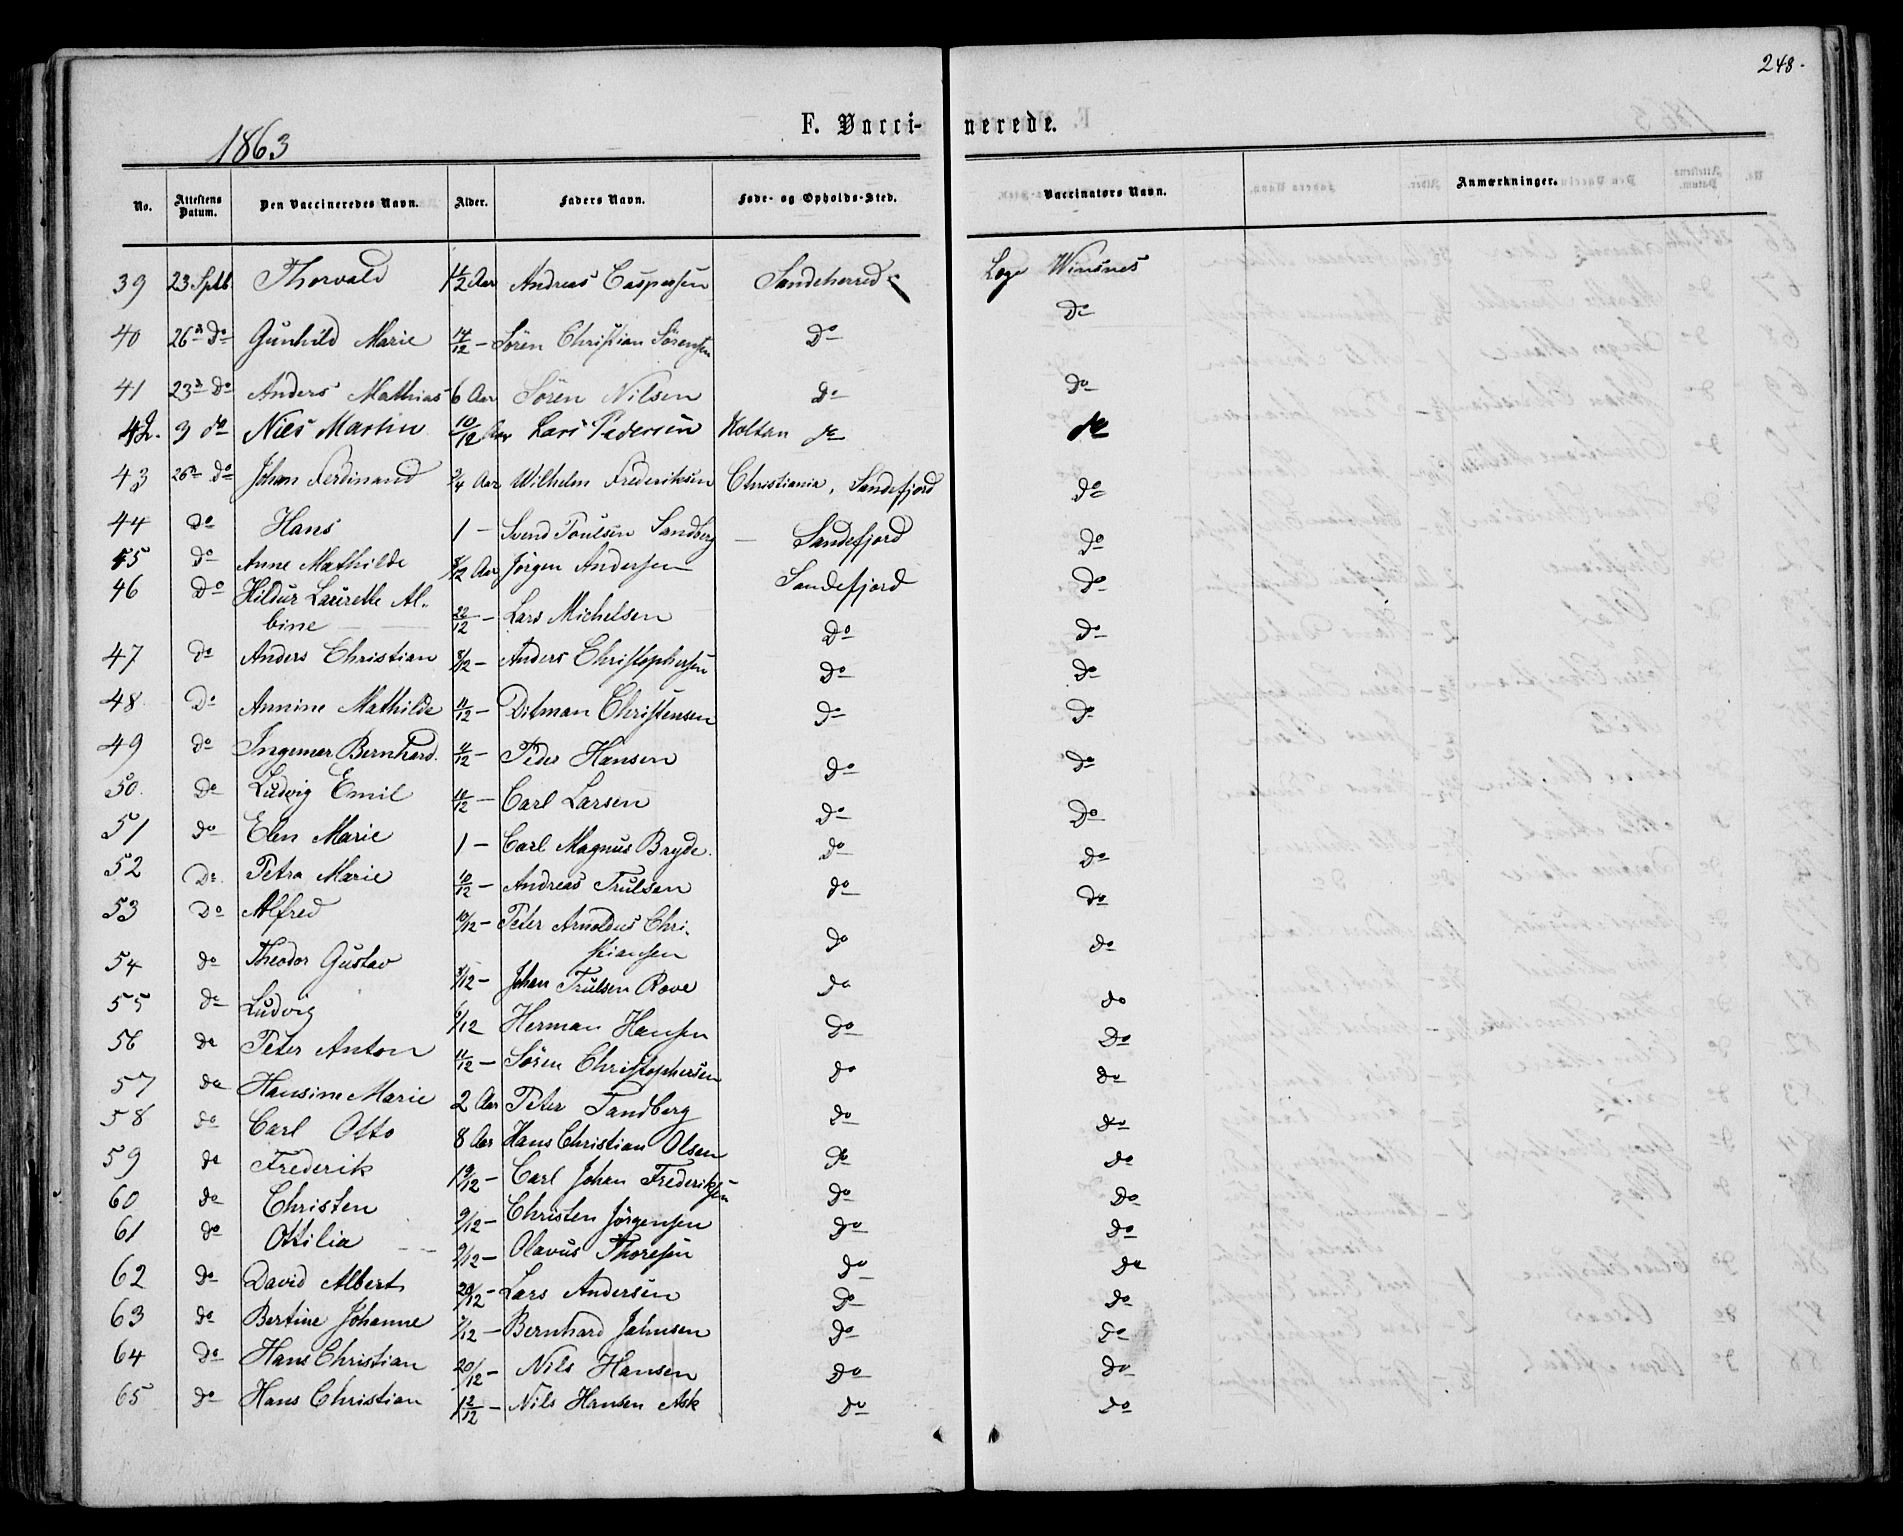 248.
F. Vacci- nerede.
1863
No. Attestens Datum. Den Vaccineredes Navn. Alder. Faders Navn. Føde- og Opholds-Sted. Vaccinatørs Navn. Anmærkninger.
39 23 Sptb. Thorvald 1 1/2 Aar Andreas Caspersen Sandeherred Læge Winsnes
40 26 Do Gunhild Marie 14/12 - Sören Christian Sörensen Do Do
41 23 Do Anders Mathias 6 Aar Sören Nilsen Do Do
42. 3 do Niels Martin 10/12 Aar Lars Pedersen Holtan do do
43 26 Do Johan Ferdinand 3/4 Aar Wilhelm Frederiksen Christiania, Sandefjord Do
44 Do Hans 1 - Svend Poulsen Sandberg - Sandefjord Do
45 Do Anne Mathilde 8/12 Aar Jörgen Andersen Sandefjord Do
46 Do Hildur Laurette Al-
bine 22/12 - Lars Michelsen Do Do
47 Do Anders Christian 8/12 - Anders Christophersen Do Do
48 Do Annine Mathilde 11/12 - Ditman Christensen Do Do
49 do Ingemar Bernhard. 11/12 - Peder Hansen Do Do
50. Do Ludvig Emil 10/12 - Carl Larsen Do Do
51 do Elen Marie 1 - Carl Magnus Bryde. Do do
52 Do Petra Marie 10/12 - Andreas Trulsen do do
53 Do Alfred 10/12 - Peter Arnoldus Chri-
stiansen do do
54 do Theodor Gustav 8/12 - Johan Trulsen Rove do do
55 do Ludvig 6/12 Herman Hansen Do Do
56 do Peter Anton 11/12 - Sören Christophersen do do
57 da Hansine Marie 2 Aar Peter Tandberg do do
58 do Carl Otto 8 Aar Hans Christian Olsen do do
59 do Frederik 19/12 - Carl Johan Frederiksen do do
60 do Christen 9/12 - Christen Jörgensen do do
61 do Ottilia - - 9/12 - Olavus Thoresen do do
62 do David Albert 20/12 - Lars Andersen do do
63 do Bertine Johanne 7/12 - Bernhard Jahnsen do do
64 do Hans Christian 20/12 - Nils Hansen Do do
65 do Hans Christian 12/12 - Nils Hansen Ask do do